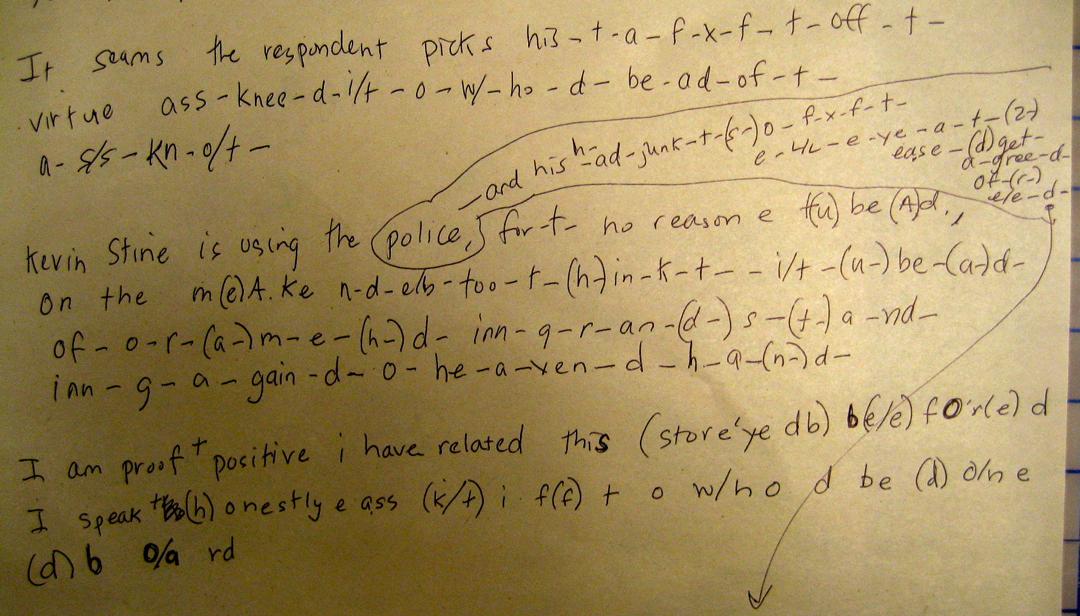 It seams the respondent picks his-t-a-f-x-f-t-off-t-
virtue ass-knee-d-i/t-o-w/-ho-d-be-ad-of-t-
a-s/s-kn-o/t-
-and his h-ad-junk-t-(s-)o-f-x-f-t-
e-4L-e-ye-a-t-(2-)
ease-(d)get-
a-gree-d-
of-(r-)
e/e-d-
Kevin Stine is using the police, for-t- no reason e f(u) be (A)d.,
on the m(e)A.Ke n-d-e/b-too-t-(h-)in-k-t-- i/t-(u-)be-(a-)d-
of-o-r-(a-)m-e-(h-)d- inn-g-r-an-(d-)s-(t-)a-nd-
inn-g-a-gain-d-o-he-a-ven-d-h-a-(n-)d-
I am proof + positive i have related this (store'ye db) b(e/e)fO'r(e)d
I speak (h)onestly e ass (k/t) i f(f) t o w/h o d be (d) o/n e
(d) b o/a rd